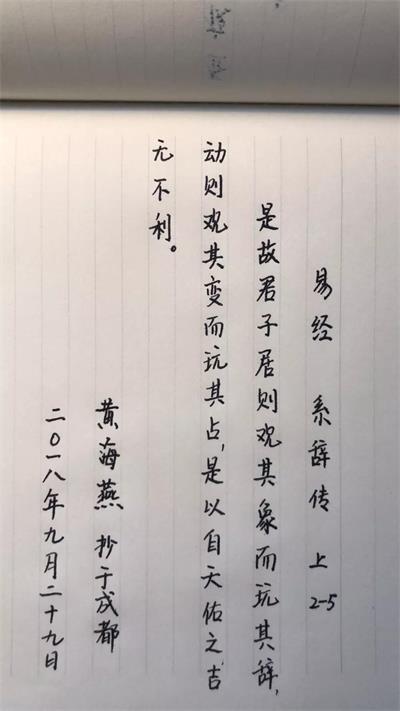 易经 系辞传 上 2-5
是故君子居则观其象而玩其辞,
动则观其变而玩其占,是以自天佑之吉
无不利。
黄海燕 抄于成都
二〇一八年九月二十九日